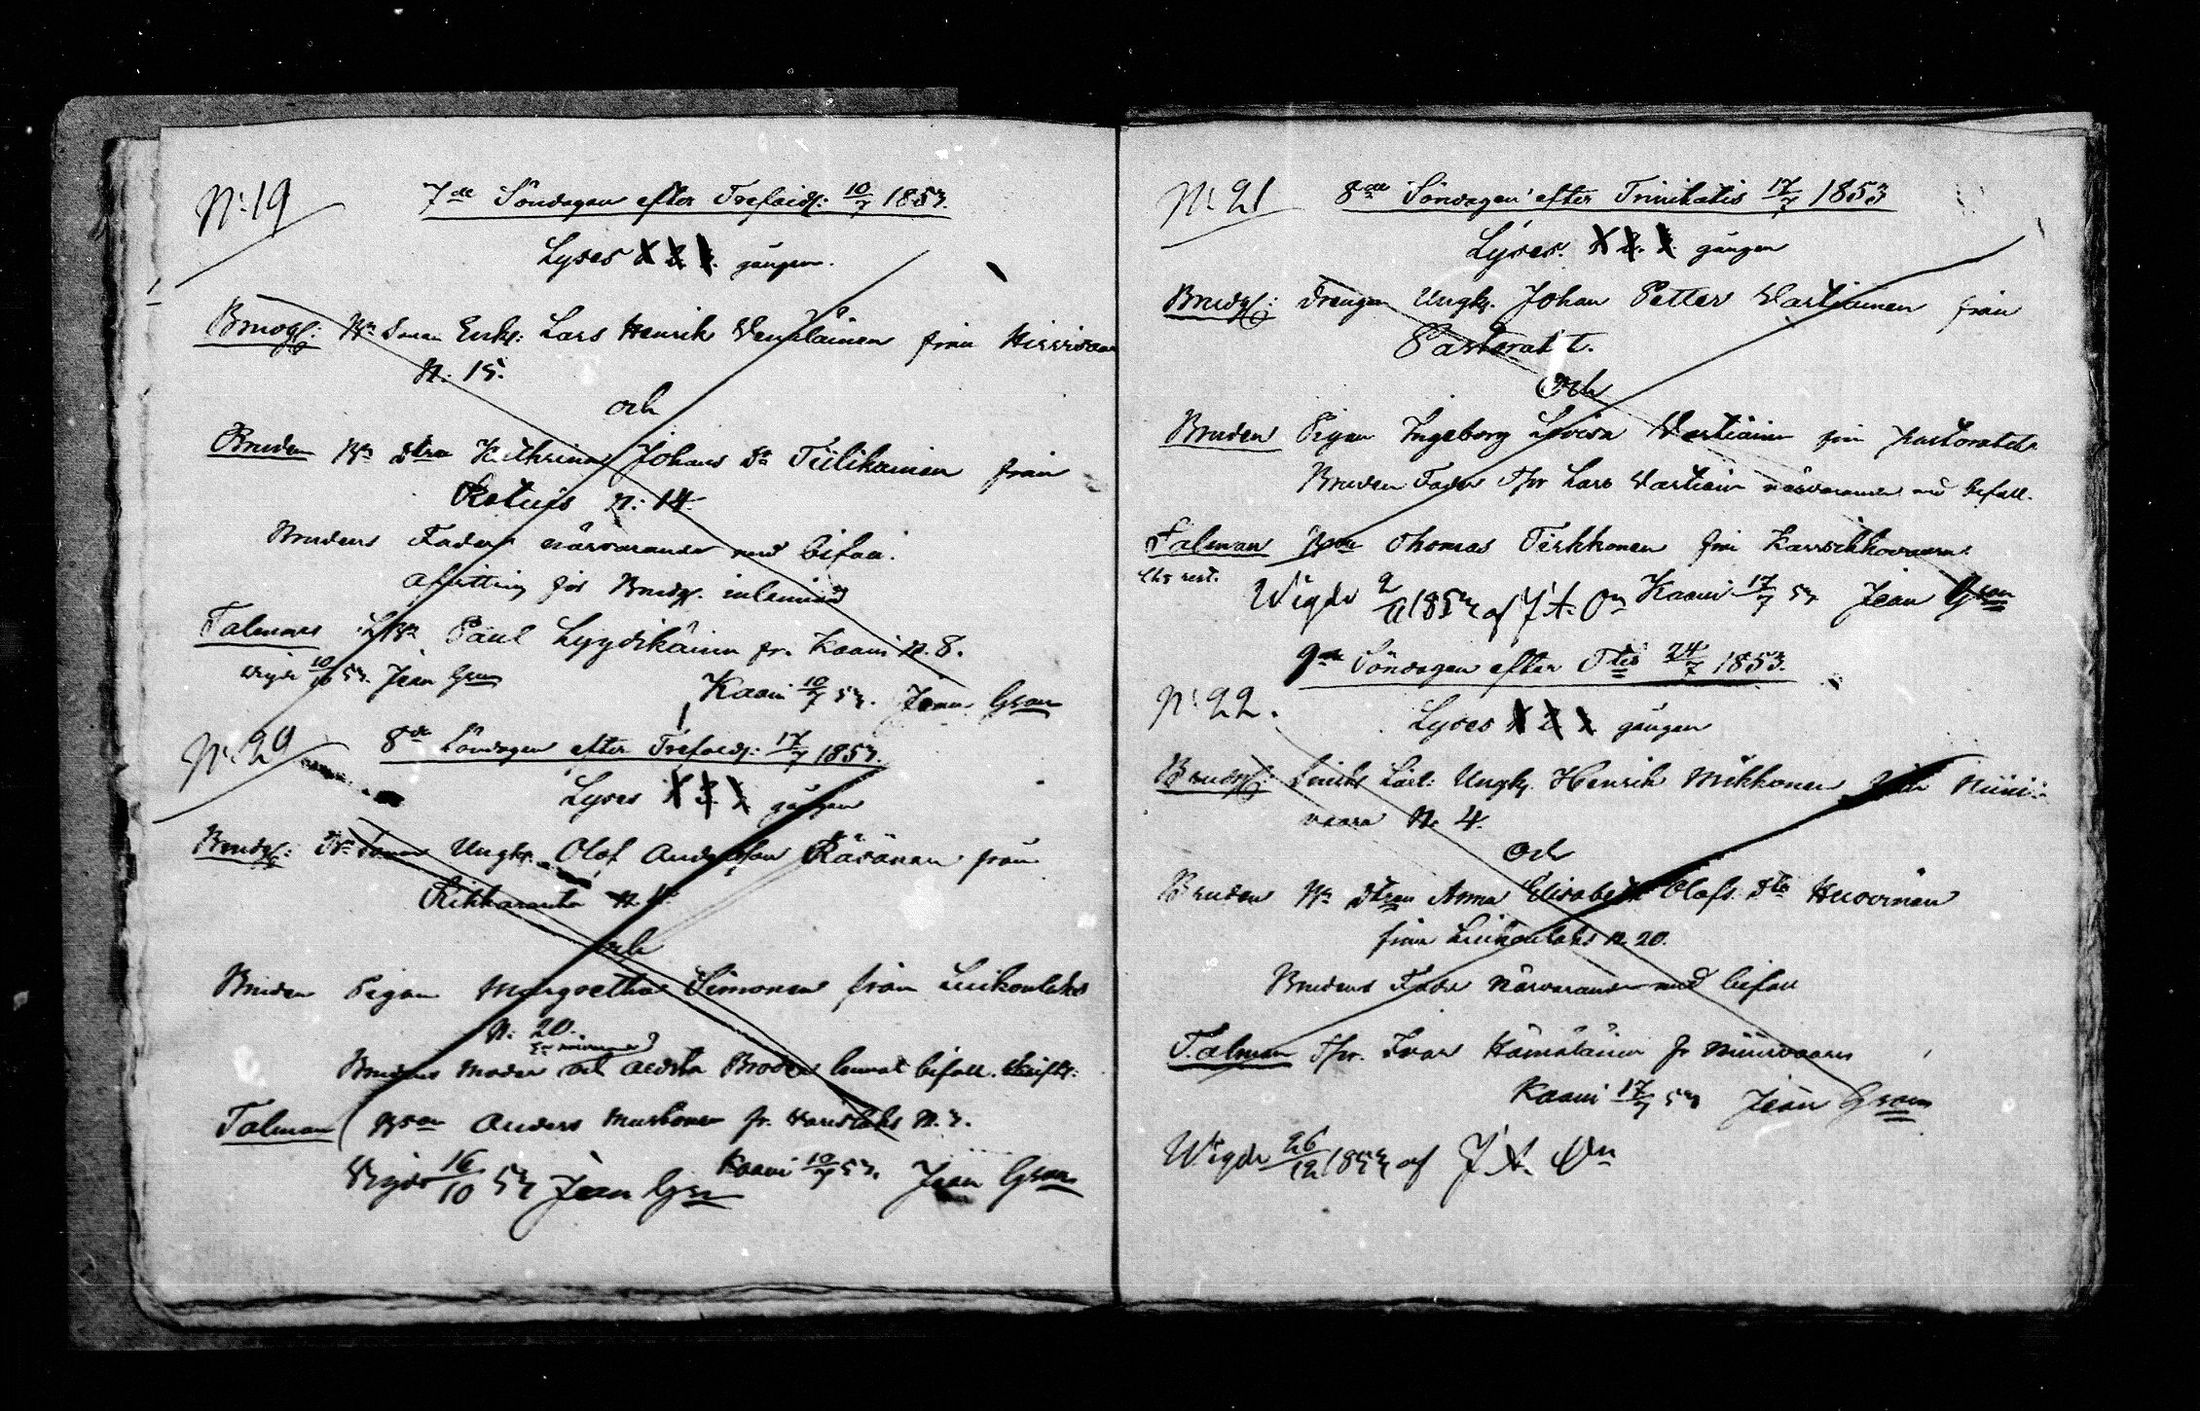 N: 19
7de Söndagen efter Trefaldh: 10/7 1853.
Lyses 1. 2. 3. gången.
Brudg: Bd Sonen Enkl: Lars Henrik Venäläinen från Hirvivaara
N: 15.
och
Bruden Bd dtrn Kathrina Johans Dr Tiilikainen från
N: 14.
Brudens Fader närvarande med bifall.
Afvittring för Brudg. inlemnad
Talman Paul Lyydikäinen fr. Kaavi N. 8.
Vigde 10/10 53. Jean Gran
Kaavi 10/7 53. Jean Gran
N: 20
8de Söndagen efter Trefaldh: 17/7 1853.
Lyses 1. 2. 3. gången
Brudg: Bd Sonen Ungk. Olof Andersson Räsänen från
Rikkaranta N. 4.
och
Bruden Pigan Margretha Simonen från Luikonlahti
N: 20.
Brudens Moder och aeldsta Broder lemnat bifall. skriftl:
Talman Anders Mustonen fr. N. 3.
Kaavi 10/7 53. Jean Gran
Vigde 16/10 53 Jean Gran
N: 21
8de Söndagen efter Trinitatis 17/7 1853
Lyses. 1. 2. 3. gången
Brudg: Drengen Ungk. Johan Petter Vartiainen från
Pastoratet.
Och
Bruden Pigan Ingeborg Lovisa Vartiain från pastoratet
Bruden Fader Tpr Lars Vartiain närvarande med bifall.
Talman Thomas Tirkkonen från
Kaavi 17/7 53 Jean Gran
Wigde 1853 af J. A.
9de Söndagen efter Ttis 24/7 1853.
N: 22.
Lyses 1. 2. 3. gången
Brudg: Ungk. Henrik Mikkonen från Niini-
vaara N: 4.
Och
Bruden Bd dtren Anna Elisabeth Olofs Dtr Huovinen
från Luikonlahti N. 20.
Brudens Fader närvarande med bifall
Talman Tpr. Ivar Hämäläinen fr Niinivaara
Kaavi 17/7 53 Jean Gran
Wigde 26/12 1853 af J. A.